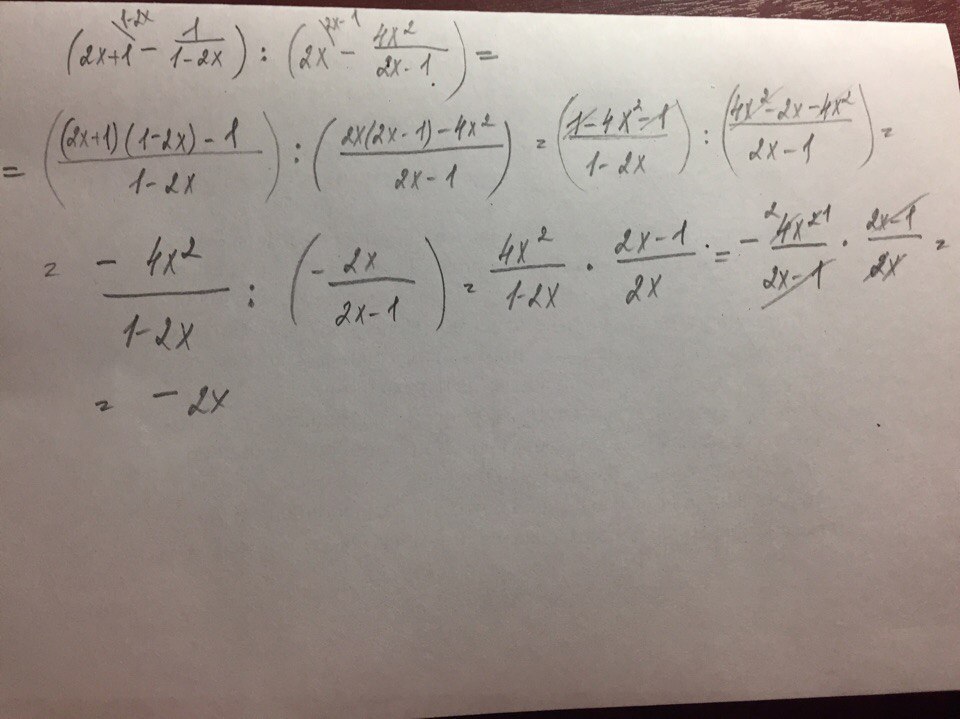 (2x+1\1-2x − 1/(1-2x)) : (2x\2x-1 − 4x²/(2x-1)) =
= (((2x+1)(1-2x)-1)/(1-2x)) : ((2x(2x-1)-4x²)/(2x-1)) = ((1-4x²-1)/(1-2x)) : ((4x²-2x-4x²)/(2x-1)) =
= - 4x²/(1-2x) : (- 2x/(2x-1)) = 4x²/(1-2x) · (2x-1)/2x = - 4x²/(2x-1) · (2x-1)/2x =
= - 2x